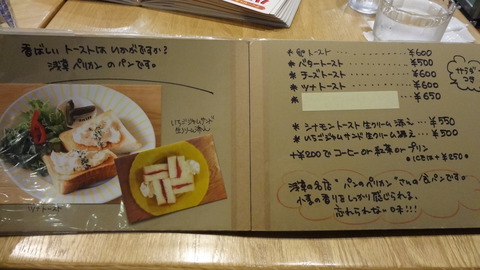 香ばしい トーストはいかがですか?
浅草ペリカン のパンです。
いちごジャムサンド
生クリーム添え
ツナトースト
トースト ・・・ ¥600
* バタートースト ・・・ ¥500
* チーズトースト ・・・ ¥600
* ツナトースト ・・・ ¥600
¥650
サラダ
つき
* シナモントースト 生クリーム添え ・・・ ¥550
* いちごジャムサンド 生クリーム添え ・・・ ¥500
+¥200で コーヒー or 紅茶 or プリン
+¥250。
浅草の名店 “パンのペリカン” さんの食パンです。
小麦の香りをしっかり感じられる、
忘れられない味!!!